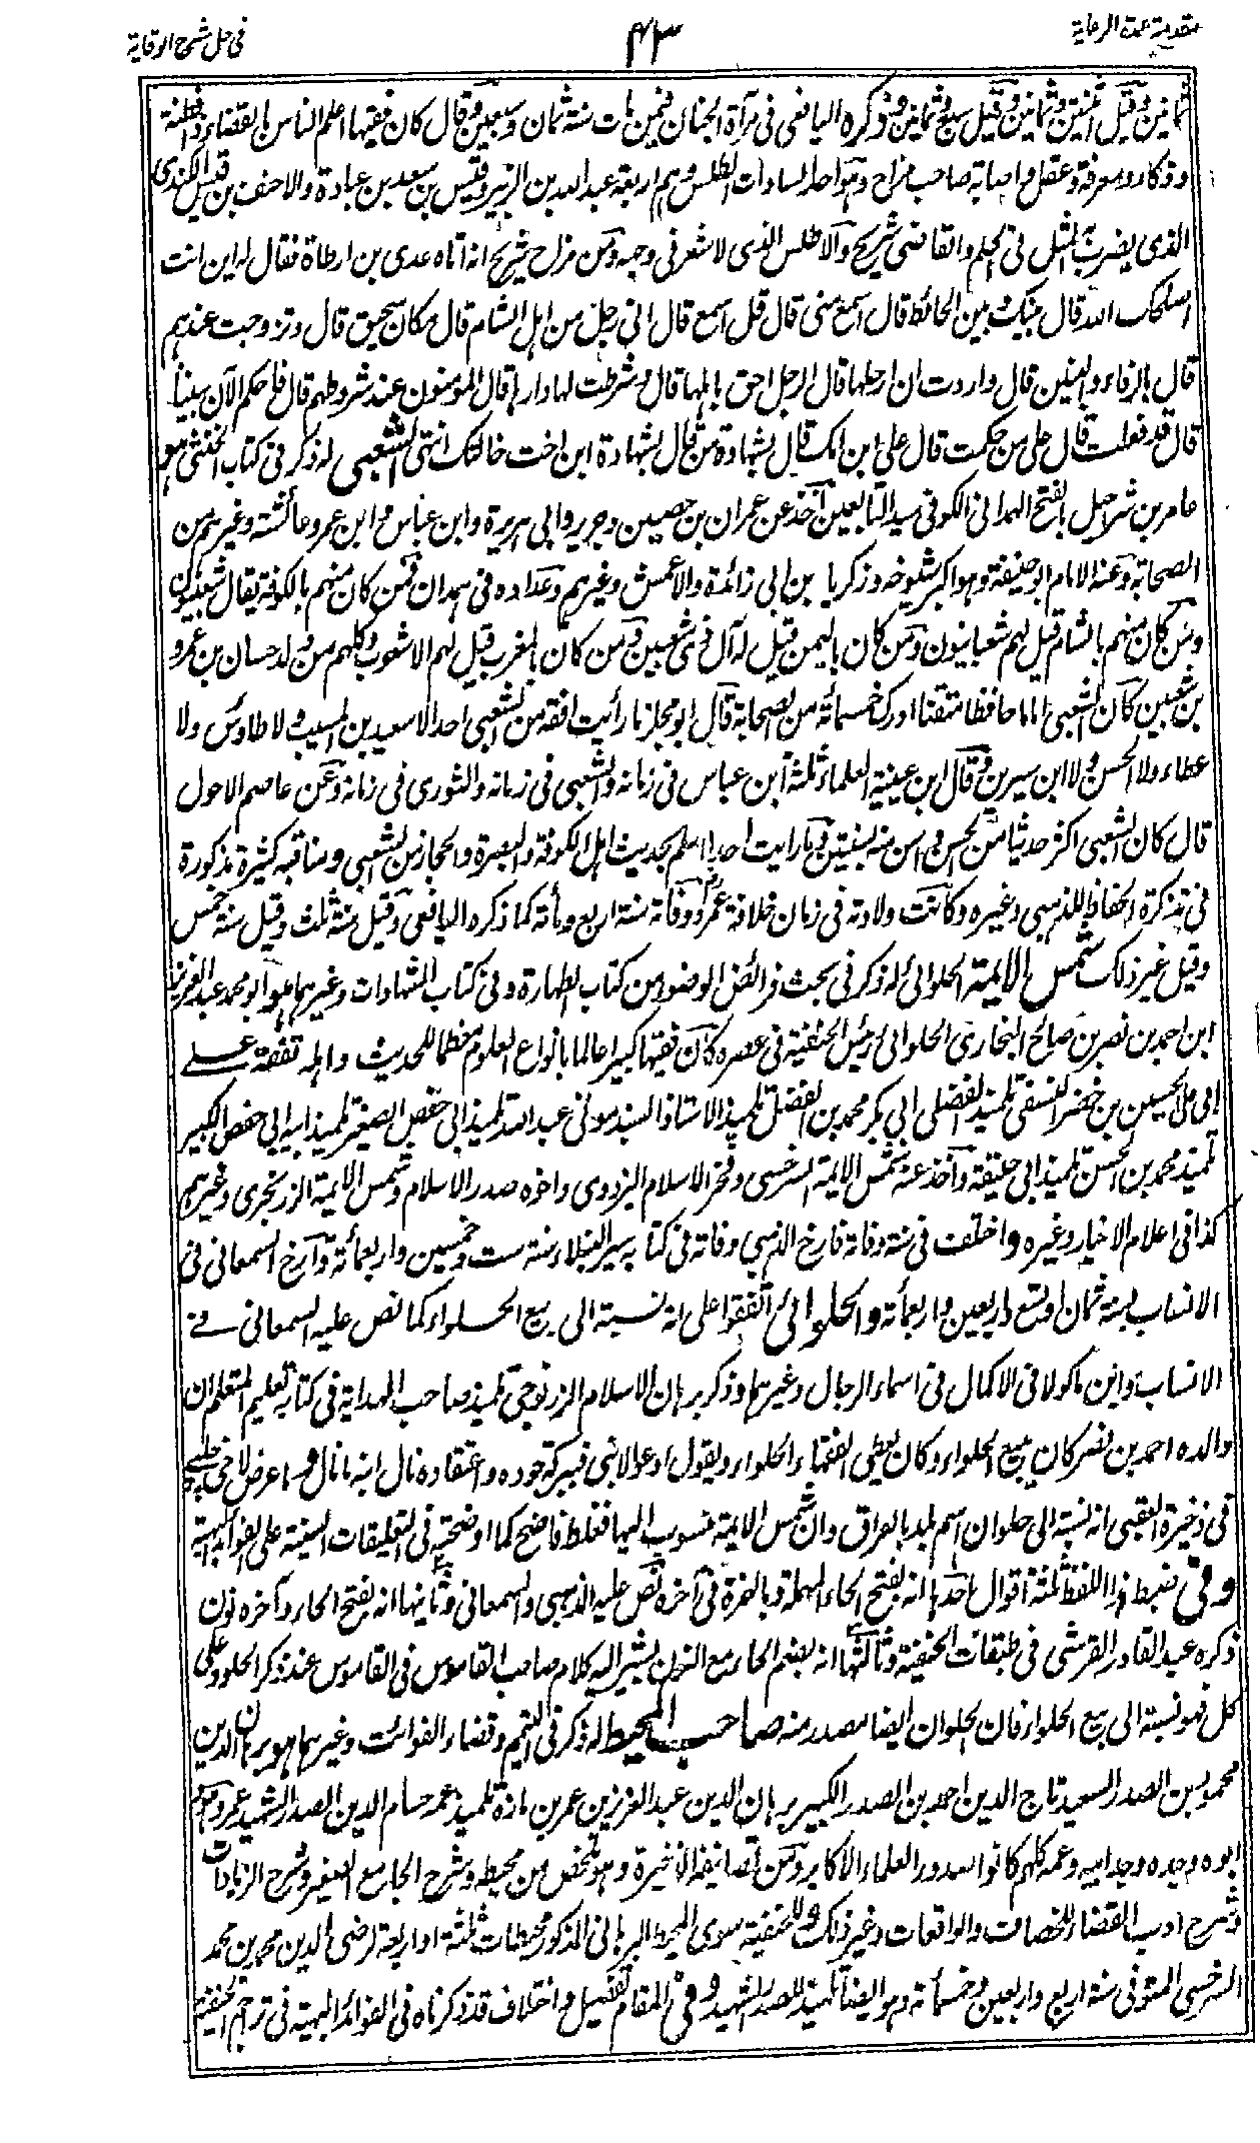 مقدمة عمدة الرعاية
۴۳
في حل شرح الوقاية
ثمانين وقيل ثنتين وثمانين وقيل سبع وثمانين وذكره اليافعي في مرآة الجنان فيمن مات سنة ثمان وسبعين وقال كان فقيها اعلم الناس بالقضاء ذا فطنة
وذكاء ومعرفة وعقل واصابة صاحب مزاح وهو احد السادات الطلس وهم اربعة عبد الله بن الزبير وقيس بن سعد بن عبادة والاحنف بن قيس الكندي
الذي يضرب به المثل في الحلم والقاضي شريح والاطلس الذي لا شعر في وجهه ومن مزاح شريح انه اتاه عدي بن ارطاة فقال له اين انت
اصلحك الله قال بينك وبين الحائط قال اسمع مني قال قل اسمع قال اني رجل من اهل الشام قال مكان سحيق قال وتزوجت عندهم
قال بالرفاء والبنين قال واردت ان ارحلها قال الرجل احق باهلها قال وشرطت لها دارها قال المؤمنون عند شروطهم قال فاحكم الآن بيننا
قال قد فعلت قال على من حكمت قال على ابن امك قال بشهادة من قال بشهادة ابن اخت خالتك انتهى الشعبي له ذكر في كتاب الخنثى هو
عامر بن شراحيل بالفتح الهمداني الكوفي سيد التابعين اخذ عن عمران بن حصين وجرير وابي هريرة وابن عباس وابن عمرو عائشة وغيرهم من
الصحابة وعنه الامام ابو حنيفة وهو اكبر شيوخه وزكريا بن ابي زائدة والاعمش وغيرهم وعداده في همدان فمن كان منهم بالكوفة يقال شعبيون
ومن كان منهم بالشام قيل لهم شعبانيون ومن كان باليمن قيل له آل ذي شعبين ومن كان بالمغرب قيل لهم الاشعوب وكلهم من ولد حسان بن عمرو
بن شعبين كان الشعبي اماما حافظا متقنا ادرك خمسمائة من الصحابة قال ابو مجلز ما رأيت افقه من الشعبي احدا لا سعيد بن المسيب ولا طاوس ولا
عطاء ولا الحسن ولا ابن سيرين وقال ابن عيينة العلماء ثلثة ابن عباس في زمانه والشعبي في زمانه والثوري في زمانه وعن عاصم الاحول
قال كان الشعبي اكثر حديثا من الحسن واسن منه بسنتين وما رايت احدا اعلم بحديث اهل الكوفة والبصرة والحجاز من الشعبي ومناقبه كثيرة مذكورة
في تذكرة الحفاظ للذهبي وغيره وكانت ولادته في زمان خلافة عمر رض ووفاته سنة اربع ومائة كما ذكره اليافعي وقيل سنة ثلث وقيل سنة خمس
وقيل غير ذلك شمس الايمة الحلوائي له ذكر في بحث فرائض الوضوء من كتاب الطهارة وفي كتاب الشهادات وغيرهما هو ابو محمد عبد العزيز
ابن احمد بن نصر بن صالح البخاري الحلوائي رئيس الحنفية في عصره كان فقيها كبيرا عالما بانواع العلوم معظما للحديث واهله تفقه على
ابي علي الحسين بن خضر النسفي تلميذ الفضلي ابي بكر محمد بن الفضل تلميذ الاستاذ السبذموني عبد الله تلميذ ابي حفص الصغير تلميذ ابيه ابي حفص الكبير
تلميذ محمد بن الحسن تلميذ ابي حنيفة واخذ عنه شمس الايمة السرخسي وفخر الاسلام البزدوي واخوه صدر الاسلام وشمس الايمة الزرنجري وغيرهم
كذا في اعلام الاخيار وغيره واختلف في سنة وفاته فارخ الذهبي وفاته في كتابه سير النبلاء سنة ست وخمسين واربعمائة وارخ السمعاني في
الانساب بسنة ثمان او تسع واربعين واربعمائة والحلوائي اتفقوا على انه نسبة الى بيع الحلواء كما نص عليه السمعاني في
الانساب وابن ماكولا في الاكمال في اسماء الرجال وغيرهما وذكر برهان الاسلام الزرنوجي تلميذ صاحب الهداية في كتابه تعليم المتعلم ان
والده احمد بن نصر كان يبيع الحلواء وكان يعطي الفقهاء الحلواء ويقول ادعوا لابني فببركة جوده واعتقاده نال ابنه ما نال وما عرض لاخي چلپي
في ذخيرة العقبى انه نسبة الى حلوان اسم بلد بالعراق وان شمس الايمة منسوب اليها فغلط فاضح كما اوضحته في التعليقات السنية على الفوائد البهية
وفي ضبط هذا اللفظ ثلثة اقوال احدها انه بفتح الحاء المهملة وبالهمزة في آخره نص عليه الذهبي والسمعاني وثانيها انه بفتح الحاء وآخره نون
ذكره عبد القادر القرشي في طبقات الحنفية وثالثها انه بضم الحاء مع النون يشير اليه كلام صاحب القاموس في القاموس عند ذكر الحلو وعلى
كل فهو نسبة الى بيع الحلواء فان الحلوان ايضا مصدر منه صاحب المحيط له ذكر في التيمم وقضاء الفوائت وغيرهما هو برهان الدين
محمود بن الصدر السعيد تاج الدين احمد بن الصدر الكبير برهان الدين عبد العزيز بن عمر بن مازة تلميذ عمه حسام الدين الصدر الشهيد عمر وهو
ابوه وجده وجد ابيه وعمه كلهم كانوا صدور العلماء الاكابر ومن تصانيفه الذخيرة وهو ملخص من محيطه وشرح الجامع الصغير وشرح الزيادات
وشرح ادب القضاء للخصاف والواقعات وغير ذلك وللحنفية سوى المحيط البرهاني المذكور محيطات ثلثة او اربعة لرضي الدين محمد بن محمد
السرخسي المتوفى سنة اربع واربعين وخمسمائة وهو ايضا تلميذ للصدر الشهيد وفي المقام تفصيل واختلاف قد ذكرناه في الفوائد البهية في تراجم الحنفية